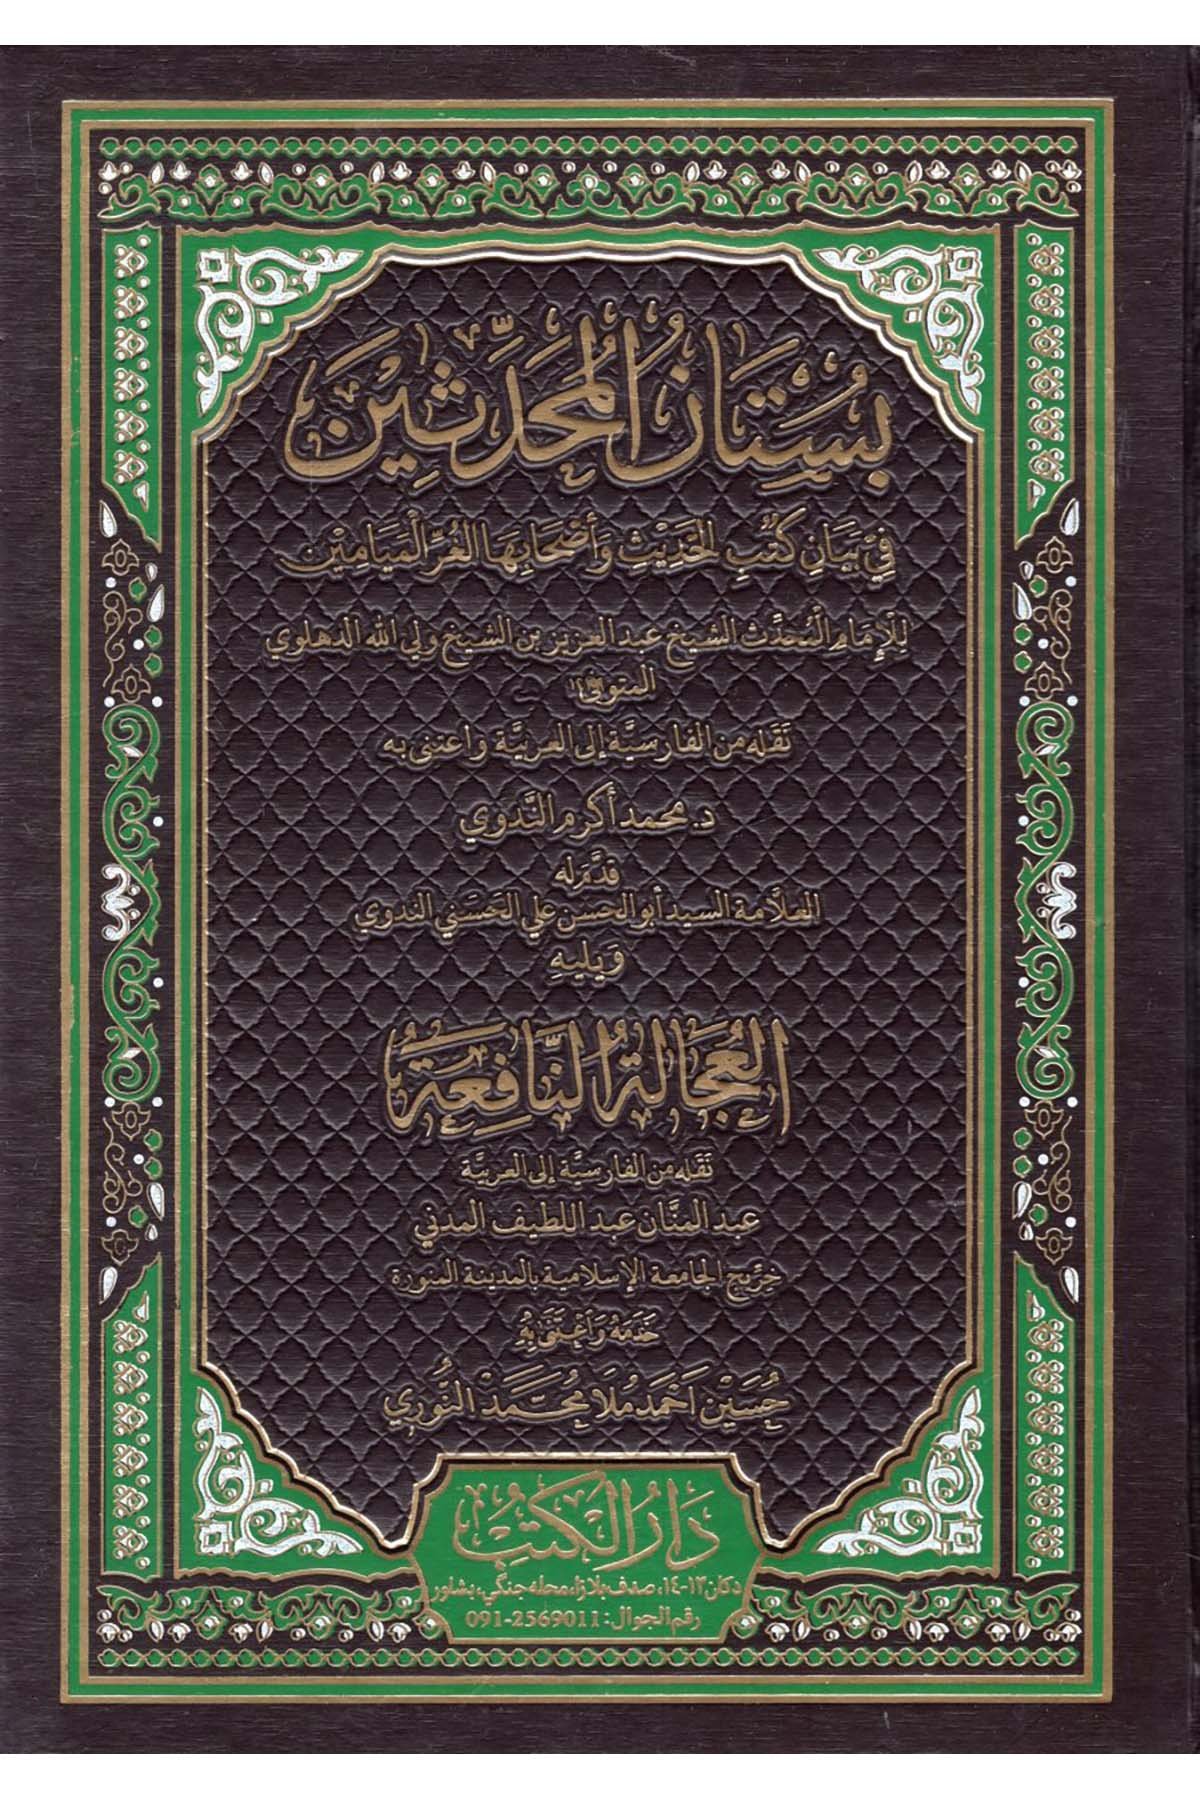 بُسْتَانُ المُحَدِّثِيْنَ
فِيْ بَيَانِ كُتُبِ الحَدِيْثِ وَأَصْحَابِهَا الغُرِّ الْمَيَامِيْن
لِلْإِمَامِ الْمُحَدِّث الشيخ عبد العزيز بن الشيخ ولي الله الدهلوي
المتوفى
نَقَلَه من الفارسيَّة إلى العربيَّة واعتنى به
د. محمد أكرم النَّدْوي
قدَّم له
العلاَّمة السيد أبو الحسن علي الحَسَني الندوي
وَيليه
العُجَالَةُ النَّافِعَةُ
نَقَلَه من الفارسيَّة إلى العربيَّة
عبد المنَّان عبد اللطيف المدني
خِرِّيج الجامعة الإسلامية بالمدينة المنورة
خَدَمَهُ وَاعْتَنَى بِهِ
حُسَيْن اَحْمَد مُلَا مُحَمَّد النُّورِي
دَارُ الكُتُب
دکان ١٣-١٤، صدف پلازا، محله جنگی، پشاور
رقم الجوال: 091-2569011